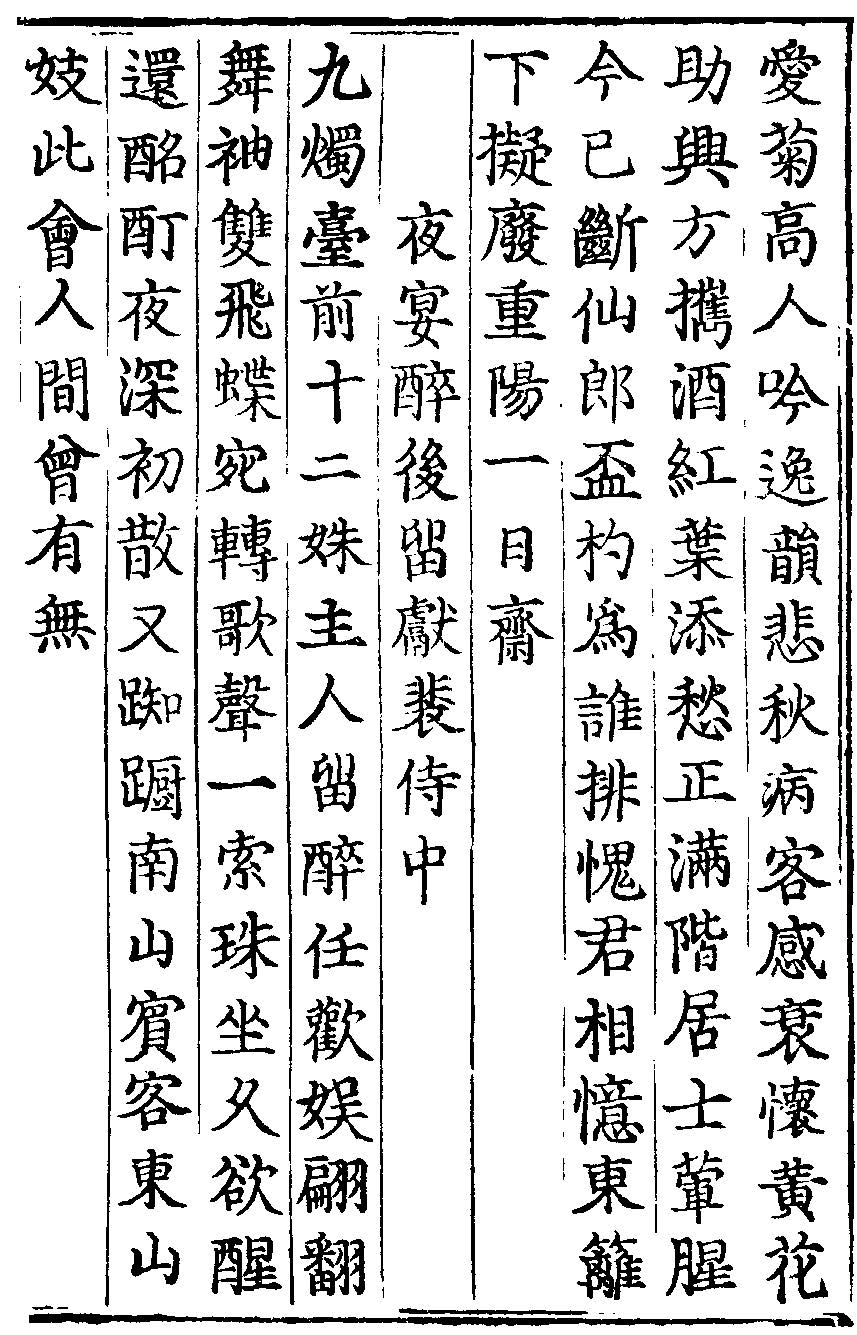 愛菊高人吟逸韻悲秋病客感衰懷黃花
助興方攜酒紅葉添愁正滿階居士葷腥
今已斷仙郎盃杓爲誰排愧君相憶東籬
下擬廢重陽一日齋
夜宴醉後留獻裴侍中
九燭臺前十二姝主人留醉任歡娱翩翻
舞袖雙飛蝶宛轉歌聲一索珠坐久欲醒
還酩酊夜深初散又踟蹰南山賓客東山
妓此會人間曾有無